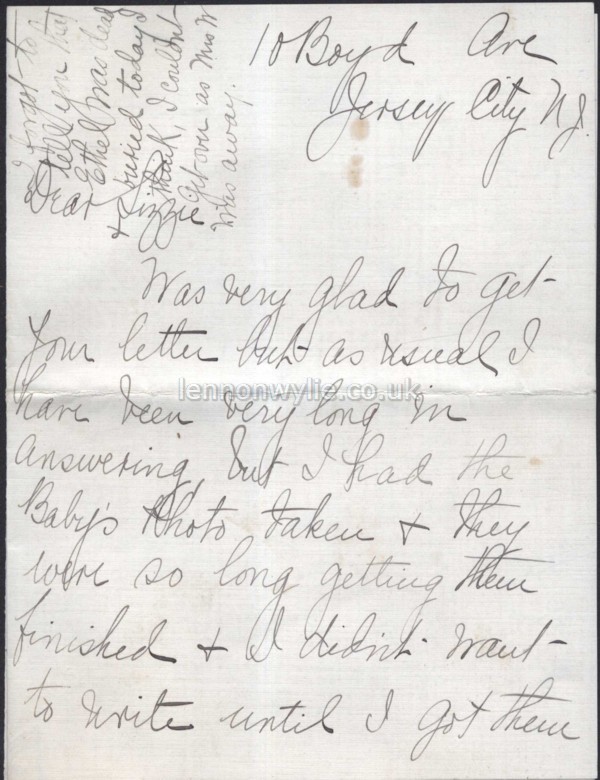 10 Boyd Ave
Jersey City N.J.
I forgot to
tell you that
Ethel was dead
& buried today I
think, I couldn't
get over as Mrs W
was away.
Dear Lizzie
Was very glad to get
your letter but as usual I
have been very long in
answering, but I had the
Baby's Photo taken & they
were so long getting them
finished & I didn't want
to write until I got them
lennonwylie.co.uk